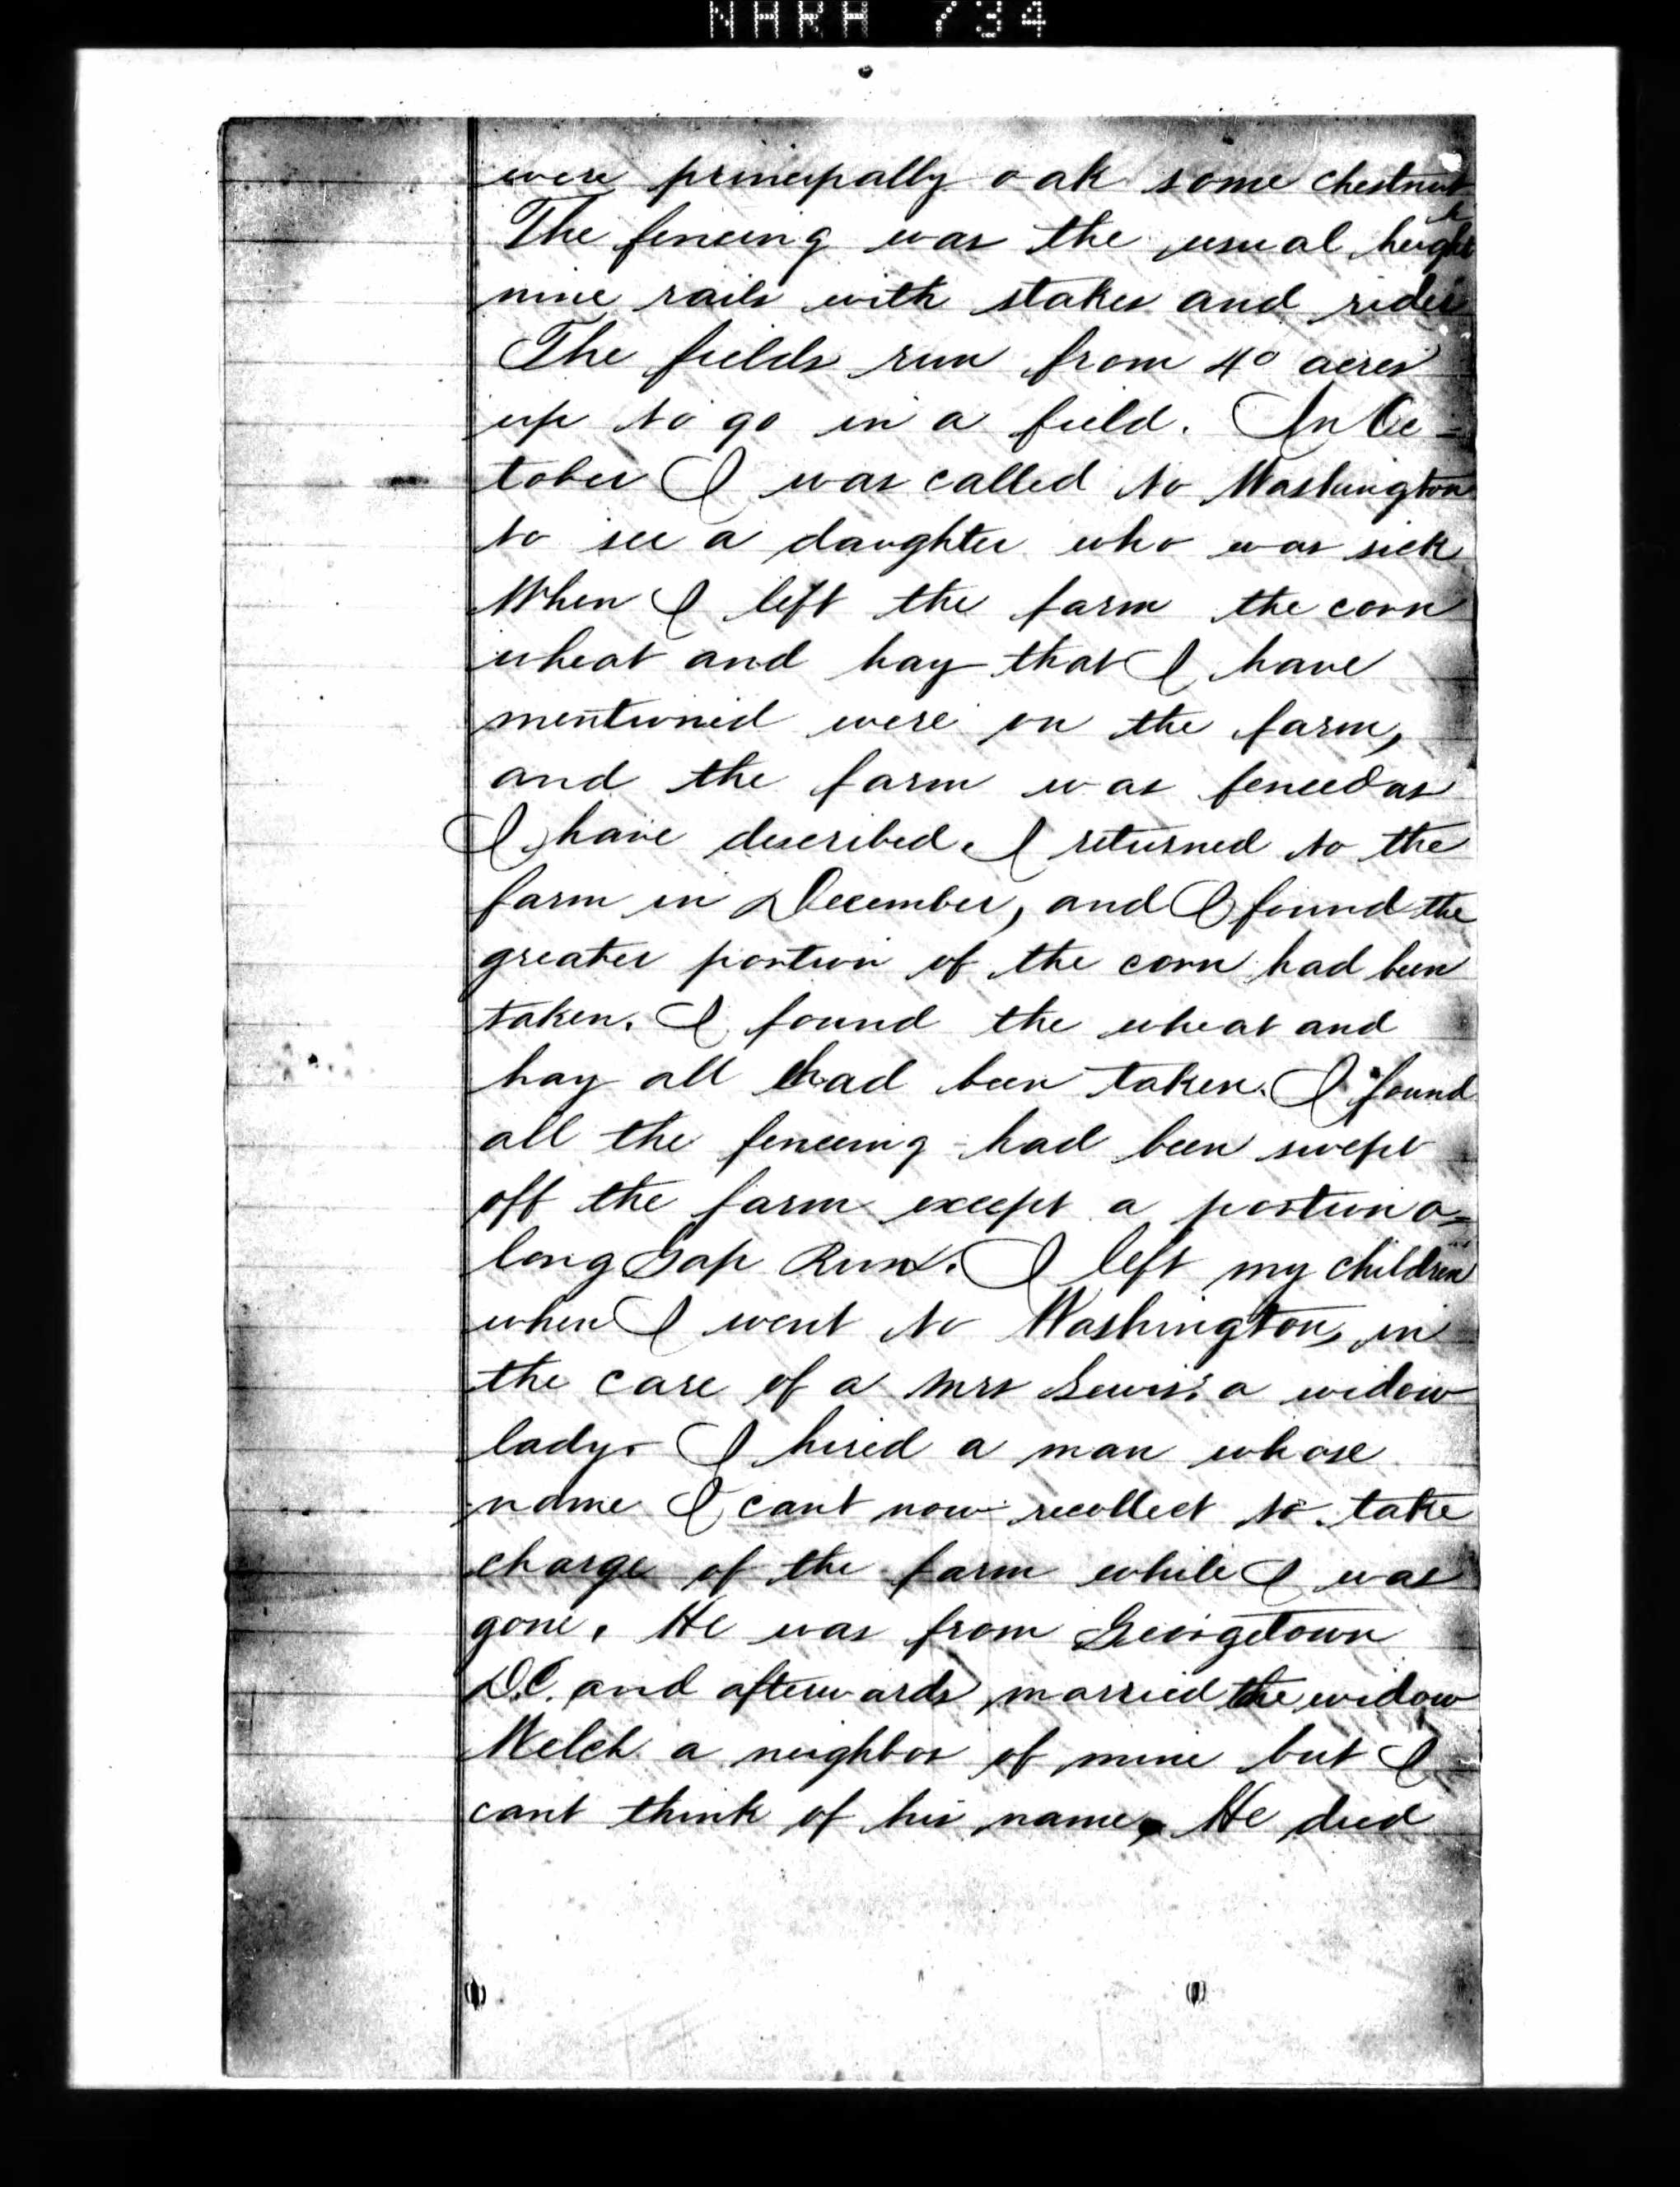 NARA 734
were principally oak some chestnut
The fencing was the usual height
nine rails with stakes and rider
The fields run from 40 acres
up to 90 in a field. In Oc-
tober I was called to Washington
to see a daughter who was sick
When I left the farm the corn
wheat and hay that I have
mentioned were on the farm,
and the farm was fenced as
I have described. I returned to the
farm in December, and I found the
greater portion of the corn had been
taken. I found the wheat and
hay all had been taken. I found
all the fenceing had been swept
off the farm except a portion a-
long Gap Run. I left my children
when I went to Washington, in
the care of a Mrs Lewis, a widow
lady. I hired a man whose
name I cant now recollect to take
charge of the farm while I was
gone. He was from Georgetown
D.C. and afterwards married the widow
Welch a neighbor of mine but I
cant think of his name, He died